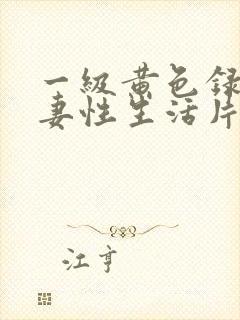 一級黄色録
妻性生活片
江亨